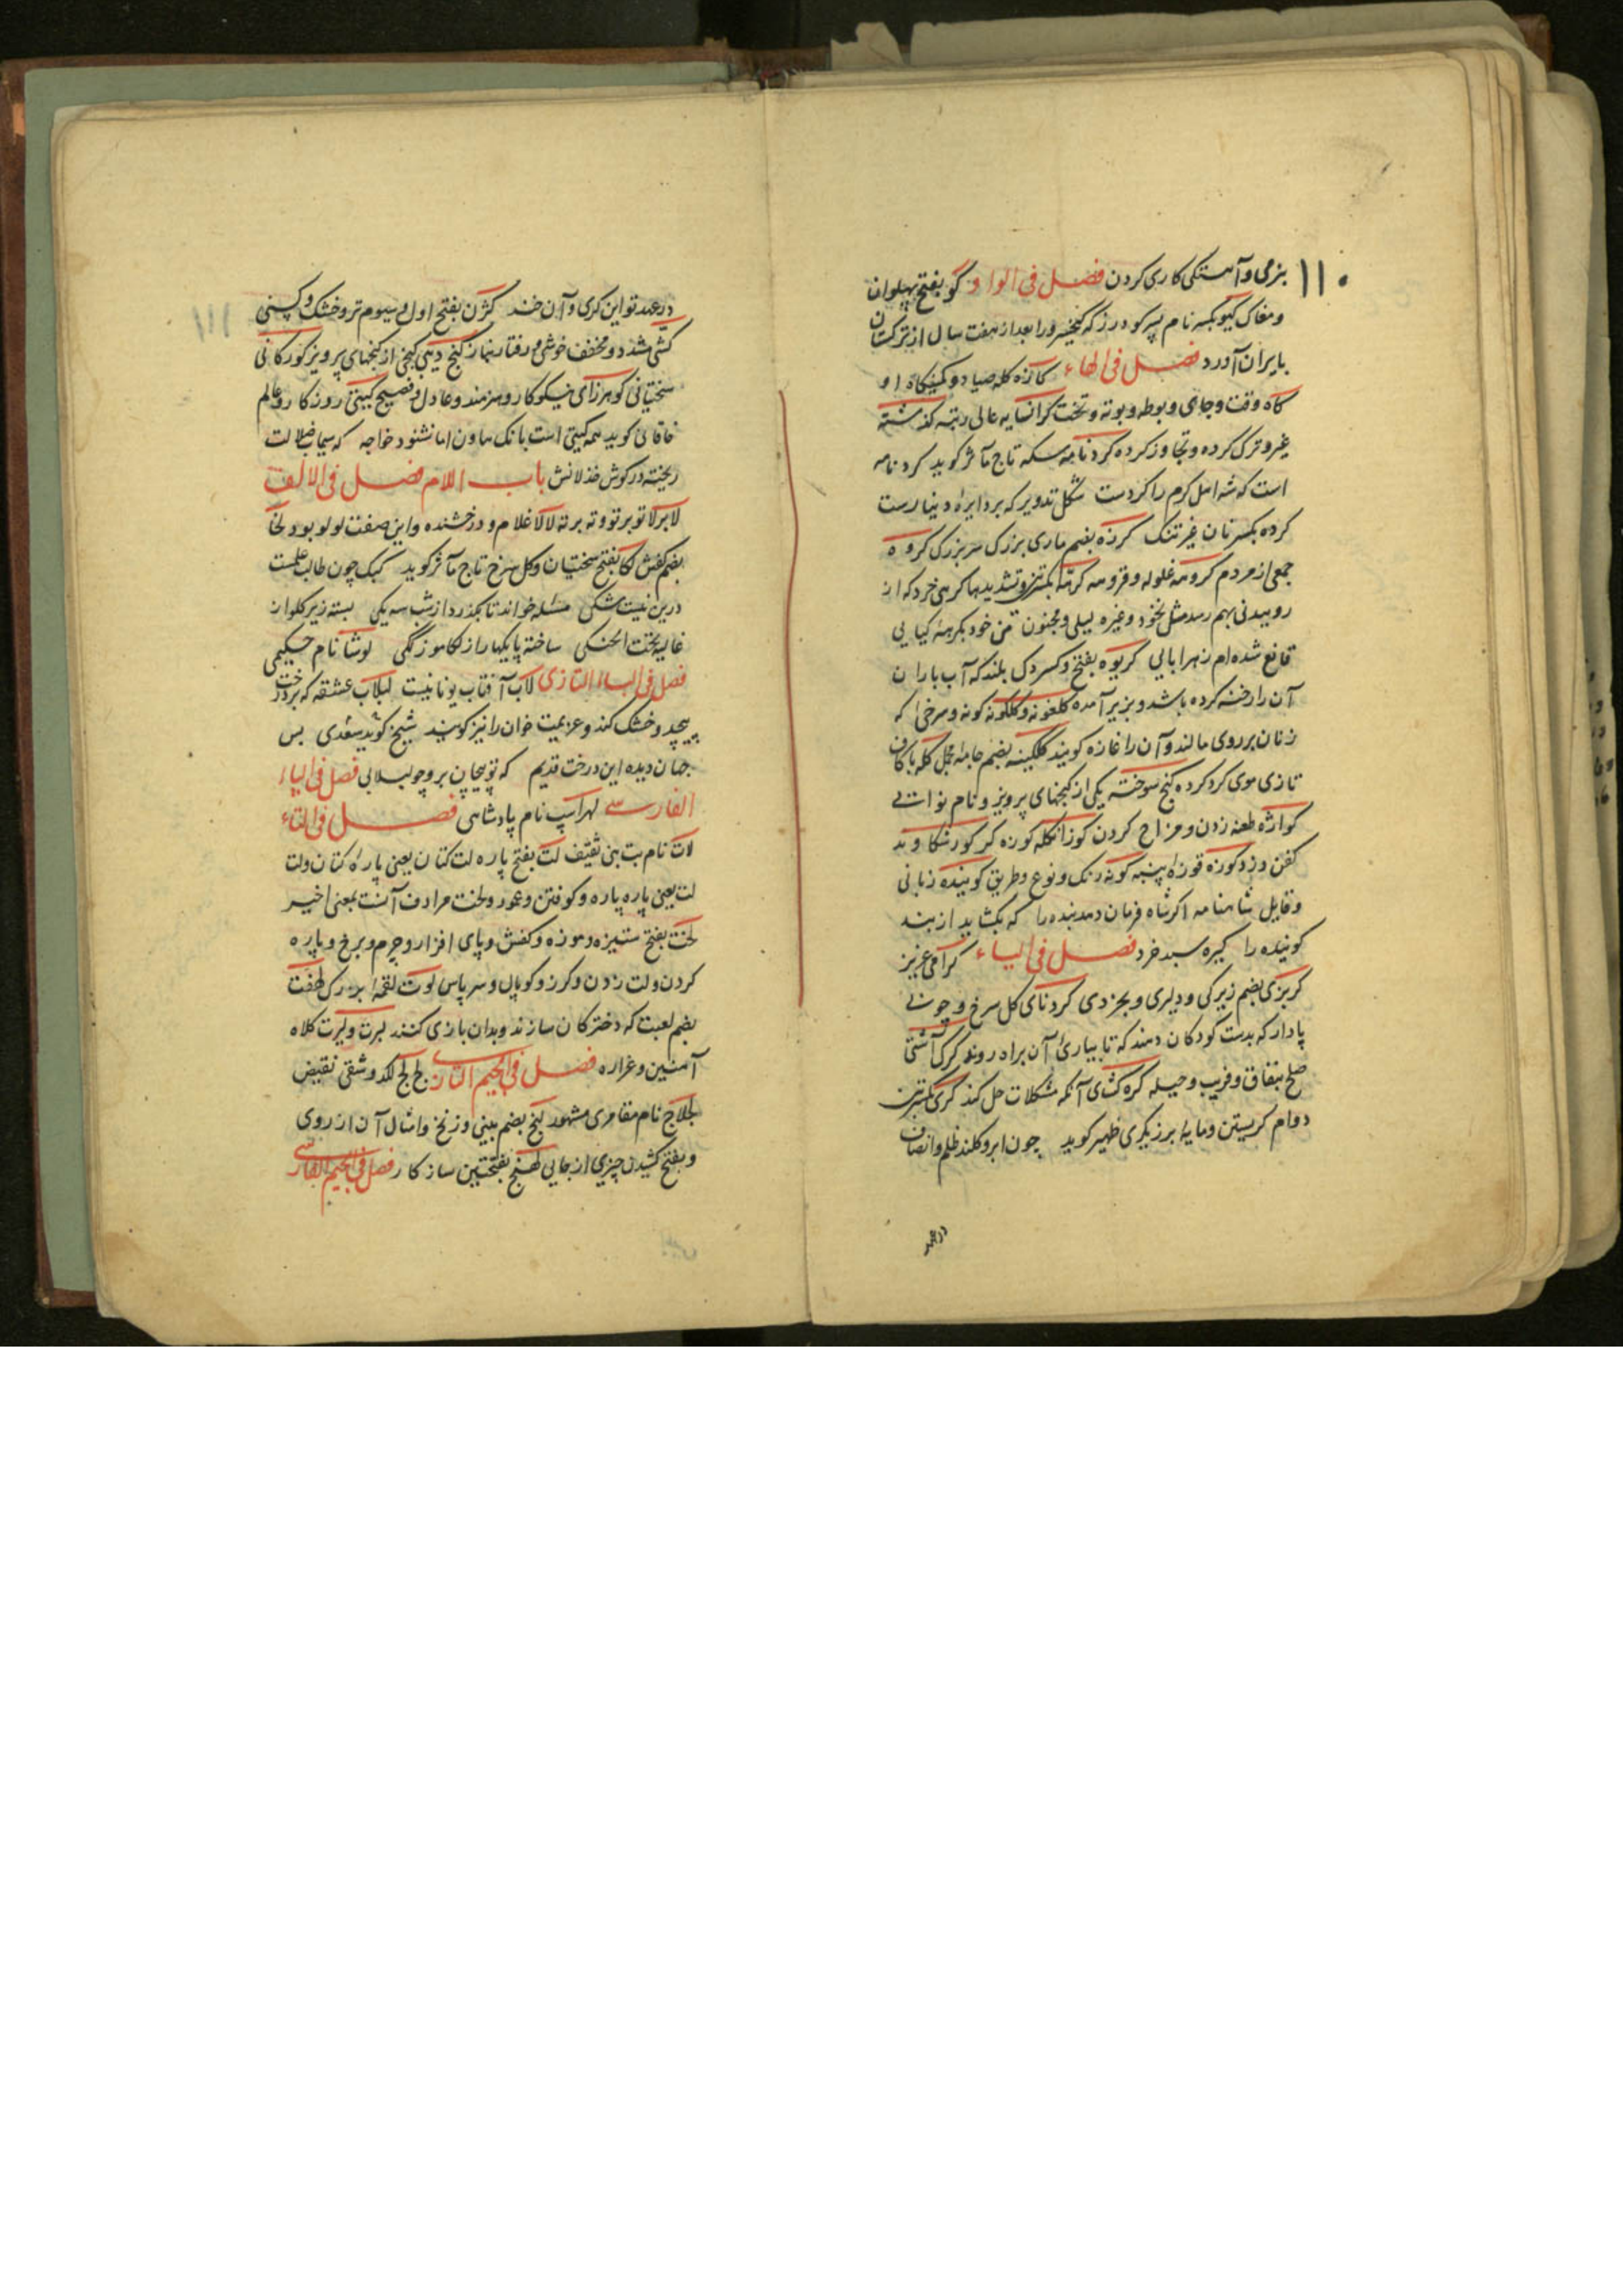 ۱۱۰
بنرمی و آهستگی کاری کردن فصل فی الواو گو بفتح پهلوان
و مغاک گیو بکسر نام پسر کودرز که کیخسرو را بعد از هفت سال از ترکستان
بایران آورد فصل فی الهاء کازه کله صیاد و کمینگاه او
گاه وقت و جای و بوطه و بوته و تخت گرانسایه عالی رتبه گذشته
غیر و ترک کرده و تجاوز کرده کردنامه سکه تاج مآثر گوید کردنامه
است که شه اهل کرم را کردست شکل تدویر که بر دایره دینارست
کرده بکسر نان غیر تنک کرزه بضم ماری بزرگ سر بزرگ کروه
جمعی از مردم کروهه غلوله و قروهه و تشدیدها کرهی خرد که از
روییدنی بهم رسد مثل نخود و غیره لیلی و مجنون من خود بکرسنه کیایی
قانع شده ام زهرابایی کریوه بفتح و کسر دک بلند که آب باران
آن را رخنه کرده باشد و بزیر آمده کلغونه و کلگونه کونه و سرخی که
زنان بر روی مالند و آن را غازه گویند کلکینه بضم جامه مخمل کله باکاف
تازی موی گرد کرده گنج سوخته یکی از گنجهای پرویز و نام نوائی
کواژه طعنه زدن و مزاح کردن کوزانکله کوزه گر کورشکاوند
کفن دزد کوزه قوزه پنبه گونه رنگ و نوع و طریق گوینده زبانی
و قایل شاهنامه اگر شاه فرمان دهد بنده را که بگشاید از بند
گوینده را کیره سبد خرد فصل فی الیاء گرامی عزیز
کربزی بضم زیرکی و دلیری و بخردی کردنای گل سرخ و چوبی
پادار که بدست کودکان دهند که تا بیاری آن براه روند گرگ آشتی
صلح بنفاق و فریب و حیله گره کشای آنکه مشکلات حل کند گری بکسرتین
دوام گریستن و مایه برزیگری ظهیر گوید چون ابرو کلند ظلم و انصاف
در عهد
۱۱۱
در عهد تو این گری و آن خند گژن بفتح اول و سیوم تر و خشک و
کشی مشدد و مخفف خوشی و رفتار بناز گنج دیهی گنجی از گنجهای پرویز کورکانی
سختیانی گوهرزای نیکوکار و هنرمند و عادل و فصیح گیتی روزگار و عالم
خاقانی گوید همه گیتی است بانک هاون اما نشنود خواجه که سیماب ضلالت
ریخته در گوش خذلانش باب اللام فصل فی الالف
لابرلا توبرتو و ته برته لالا غلام و درخشنده و این صفت لولو بود لخا
بضم کفش لکا بفتح سختیان و گل سرخ تاج مآثر گوید کبک چون طالب علمست
درین نیست شکی مسئله خواند تا بگذرد از شب سه یکی بسته زیر کلو از
غالیه تحت الحنکی ساخته پایکها را ز لکا موزگکی لوشا نام حکیمی
فصل فی الباء التازی لاب آفتاب یونانیست لبلاب عشقه که بر درخت
پیچد و خشک کند و عزیمت خوان را نیز گویند شیخ گوید سعدی بس
جهان دیده این درخت قدیم که تو پیچان برو چو لبلابی فصل فی الپاء
الفارسی لهراسپ نام پادشاهی فصل فی التاء
لات نام بت بنی ثقیف لت بفتح پاره لت کتان یعنی پاره کتان و لت
لت یعنی پاره پاره و کوفتن و عمود و لخت مرادف آنست بمعنی اخیر
لخت بفتح ستیزه و موزه و کفش و پای افزار و چرم و برخ و پاره
کردن و لت زدن و گرز و کوپال و سرپاس لوت لقمه بزرگ لعبت
بضم لعبت که دخترکان سازند و بدان بازی کنند لبرت و لیرت کلاه
آهنین و غراره فصل فی الجیم التازی لج لج لگد و شقی نقیض
لجلاج نام مقامری مشهور لنج بضم بینی و زنخ و امثال آن از روی
و بفتح کشیدن چیزی از جایی لهنج بفتحتین سازکار فصل فی الجیم الفارسی